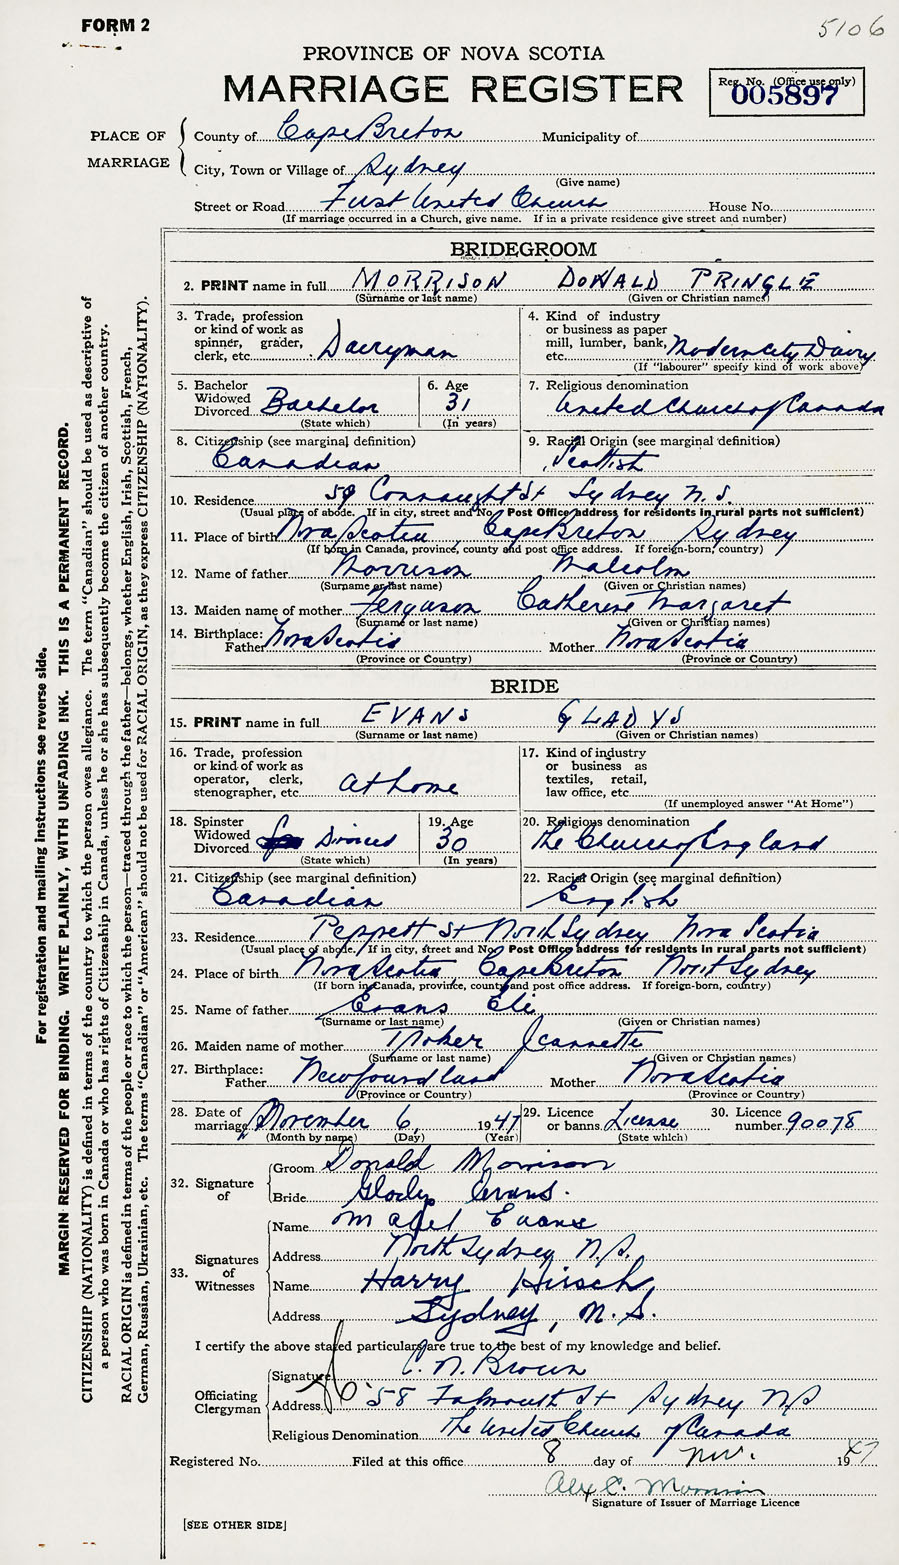 FORM 2
5106
PROVINCE OF NOVA SCOTIA
MARRIAGE REGISTER
Reg. No. (Office use only)
005897
PLACE OF MARRIAGE
County of Cape Breton Municipality of
City, Town or Village of Sydney
(Give name)
Street or Road First United Church House No.
(If marriage occurred in a Church, give name. If in a private residence give street and number)
BRIDEGROOM
2. PRINT name in full MORRISON DONALD PRINGLE
(Surname or last name) (Given or Christian names)
3. Trade, profession
or kind of work as
spinner, grader,
clerk, etc. Dairyman
4. Kind of industry
or business as paper
mill, lumber, bank,
etc. Modern City Dairy
(If "labourer" specify kind of work above)
5. Bachelor
Widowed
Divorced Bachelor
(State which)
6. Age
31
(In years)
7. Religious denomination
United Church of Canada
8. Citizenship (see marginal definition)
Canadian
9. Racial Origin (see marginal definition)
Scottish
10. Residence 59 Connaught St Sydney N.S.
(Usual place of abode. If in city, street and No. Post Office address for residents in rural parts not sufficient)
11. Place of birth Nova Scotia, Cape Breton Sydney
(If born in Canada, province, county and post office address. If foreign-born, country)
12. Name of father Morrison Malcolm
(Surname or last name) (Given or Christian names)
13. Maiden name of mother Ferguson Catherine Margaret
(Surname or last name) (Given or Christian names)
14. Birthplace:
Father Nova Scotia Mother Nova Scotia
(Province or Country) (Province or Country)
BRIDE
15. PRINT name in full EVANS GLADYS
(Surname or last name) (Given or Christian names)
16. Trade, profession
or kind of work as
operator, clerk,
stenographer, etc. at home
17. Kind of industry
or business as
textiles, retail,
law office, etc.
(If unemployed answer "At Home")
18. Spinster
Widowed
Divorced Divorced
(State which)
19. Age
30
(In years)
20. Religious denomination
The Church of England
21. Citizenship (see marginal definition)
Canadian
22. Racial Origin (see marginal definition)
English
23. Residence Peppett St North Sydney Nova Scotia
(Usual place of abode. If in city, street and No. Post Office address for residents in rural parts not sufficient)
24. Place of birth Nova Scotia, Cape Breton North Sydney
(If born in Canada, province, county and post office address. If foreign-born, country)
25. Name of father Evans Eli
(Surname or last name) (Given or Christian names)
26. Maiden name of mother Jeannette
(Surname or last name) (Given or Christian names)
27. Birthplace:
Father Newfoundland Mother Nova Scotia
(Province or Country) (Province or Country)
28. Date of
marriage November 6, 1947
(Month by name) (Day) (Year)
29. Licence
or banns License
(State which)
30. Licence
number 90078
32. Signature of
Groom Donald Morrison
Bride Gladys Evans.
33. Signatures of Witnesses
Name Mabel Evans
Address North Sydney N.S.
Name Harry Hirsch,
Address Sydney, N.S.
I certify the above stated particulars are true to the best of my knowledge and belief.
Officiating Clergyman
Signature C. N. Brown
Address 58 Falmouth St Sydney N S
Religious Denomination The United Church of Canada
Registered No. Filed at this office 8 day of Nov. 1947
Alex C. Morrison
Signature of Issuer of Marriage Licence
[SEE OTHER SIDE]
For registration and mailing instructions see reverse side.
MARGIN RESERVED FOR BINDING. WRITE PLAINLY, WITH UNFADING INK. THIS IS A PERMANENT RECORD.
CITIZENSHIP (NATIONALITY) is defined in terms of the country to which the person owes allegiance. The term "Canadian" should be used as descriptive of
a person who was born in Canada or who has rights of Citizenship in Canada, unless he or she has subsequently become the citizen of another country.
RACIAL ORIGIN is defined in terms of the people or race to which the person—traced through the father—belongs, whether English, Irish, Scottish, French,
German, Russian, Ukrainian, etc. The terms "Canadian" or "American" should not be used for RACIAL ORIGIN, as they express CITIZENSHIP (NATIONALITY).